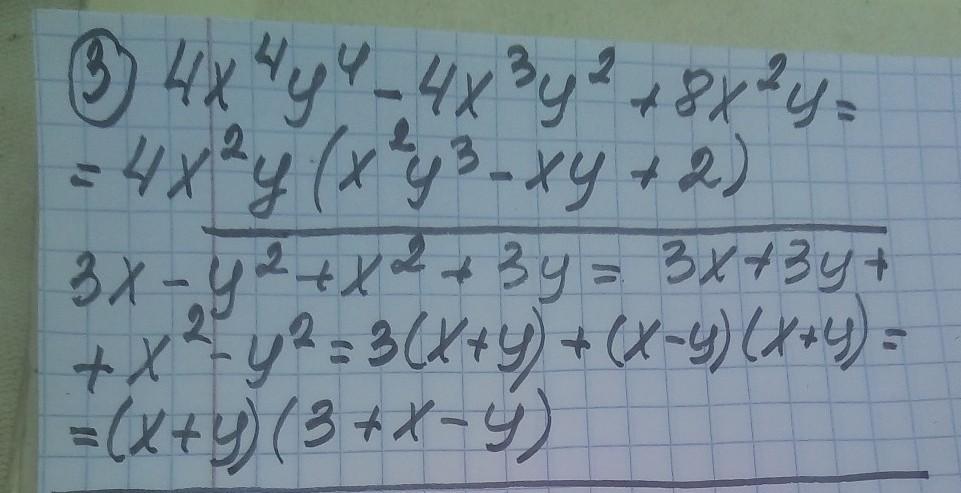 ③ 4x⁴y⁴ - 4x³y² + 8x²y =
= 4x²y (x²y³ - xy + 2)
3x - y² + x² + 3y = 3x + 3y +
+ x² - y² = 3(x+y) + (x-y)(x+y) =
= (x+y)(3+x-y)